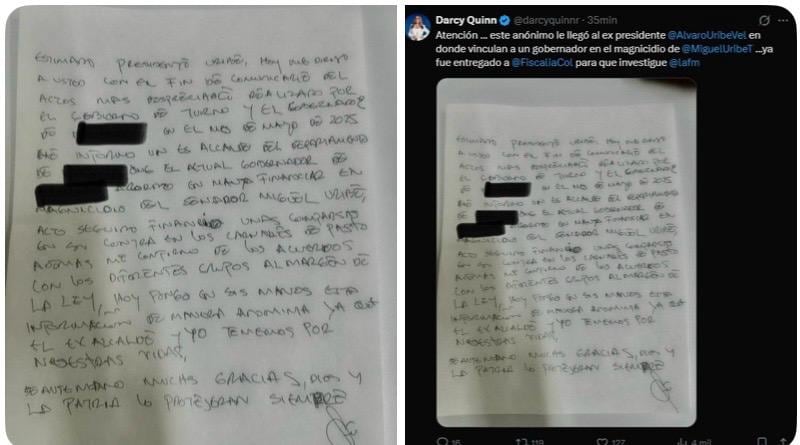 ESTIMADO PRESIDENTE URIBE, HOY ME DIRIJO
A USTED CON EL FIN DE COMUNICARLE DEL
ACTOS MAS DESPRECIABLE REALIZADO POR
EL GOBIERNO DE TURNO Y EL GOBERNADOR
DE EN EL MES DE MAYO DE 2025
ME INFORMO UN EX ALCALDE DEL DEPARTAMENTO
DE QUE EL ACTUAL GOBERNADOR DE
ACORDO EN MANTA FINANCIAR EN
MAGNICIDIO DEL SENADOR MIGUEL URIBE,
ACTO SEGUIDO FINANCIO UNAS COMPARSAS
EN SU CONTRA EN LOS CARNAVALES DE PASTO
ADEMAS ME CONFIRMO DE LOS ACUERDOS
CON LOS DIFERENTES GRUPOS AL MARGEN DE
LA LEY, HOY PONGO EN SUS MANOS ESTA
INFORMACION DE MANERA ANONIMA YA QUE
EL EX ALCALDE Y YO TEMEMOS POR
NUESTRAS VIDAS,
DE ANTEMANO MUCHAS GRACIAS, DIOS Y
LA PATRIA LO PROTEJERAN SIEMPRE
Darcy Quinn @darcyquinnr · 35min
Atención ... este anónimo le llegó al ex presidente @AlvaroUribeVel en
donde vinculan a un gobernador en el magnicidio de @MiguelUribeT ...ya
fue entregado a @FiscaliaCol para que investigue @lafm
ESTIMADO PRESIDENTE URIBE, HOY ME DIRIJO
A USTED CON EL FIN DE COMUNICARLE DEL
ACTOS MAS DESPRECIABLE REALIZADO POR
EL GOBIERNO DE TURNO Y EL GOBERNADOR
DE EN EL MES DE MAYO DE 2025
ME INFORMO UN EX ALCALDE DEL DEPARTAMENTO
DE QUE EL ACTUAL GOBERNADOR DE
ACORDO EN MANTA FINANCIAR EN
MAGNICIDIO DEL SENADOR MIGUEL URIBE,
ACTO SEGUIDO FINANCIO UNAS COMPARSAS
EN SU CONTRA EN LOS CARNAVALES DE PASTO
ADEMAS ME CONFIRMO DE LOS ACUERDOS
CON LOS DIFERENTES GRUPOS AL MARGEN DE
LA LEY, HOY PONGO EN SUS MANOS ESTA
INFORMACION DE MANERA ANONIMA YA QUE
EL EX ALCALDE Y YO TEMEMOS POR
NUESTRAS VIDAS,
DE ANTEMANO MUCHAS GRACIAS, DIOS Y
LA PATRIA LO PROTEJERAN SIEMPRE